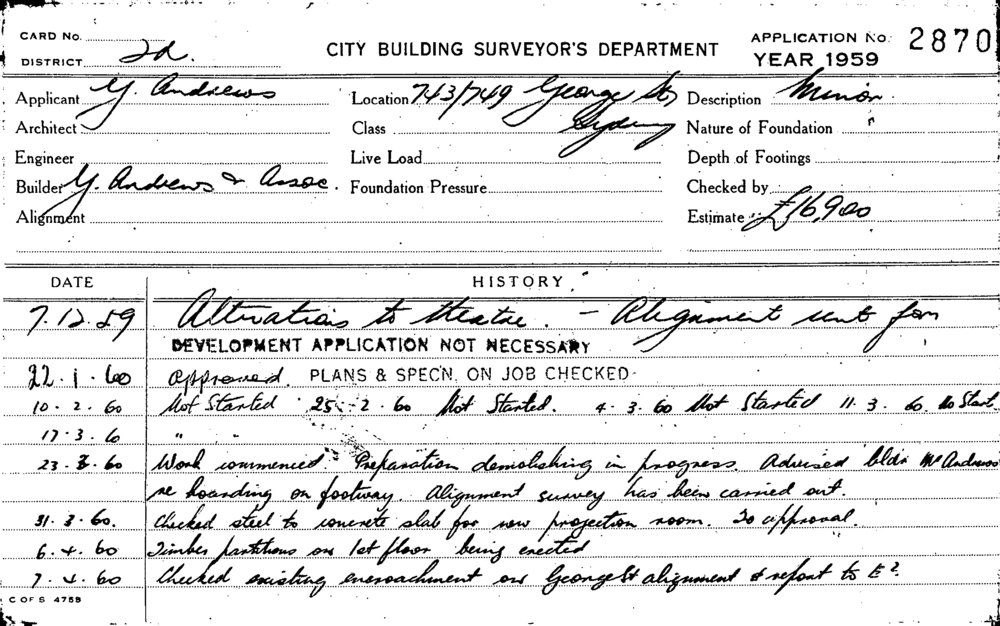 CARD No.
DISTRICT 2d.
CITY BUILDING SURVEYOR'S DEPARTMENT
APPLICATION No. 2870
YEAR 1959
Applicant Y. Andrews Location 743/749 George St, Description Minor
Architect Class Sydney Nature of Foundation
Engineer Live Load Depth of Footings
Builder Y. Andrews & Assoc. Foundation Pressure Checked by
Alignment Estimate £16,900
DATE HISTORY
7.12.59 Alterations to theatre. - Alignment sent for
DEVELOPMENT APPLICATION NOT NECESSARY
22.1.60 Approved. PLANS & SPEC'N. ON JOB CHECKED
10.2.60 Not Started 25.2.60 Not Started. 4.3.60 Not Started 11.3.60. No Start.
17.3.6 " "
23.3.60 Work commenced. Preparation demolishing in progress. Advised bldr Mr Andrews
re hoarding on footway. Alignment survey has been carried out.
31.3.60. Checked steel to concrete slab for new projection room. To approval.
6.4.60 Timber partitions on 1st floor being erected
7.4.60 Checked existing encroachment on George St alignment & report to
C OF S 4759